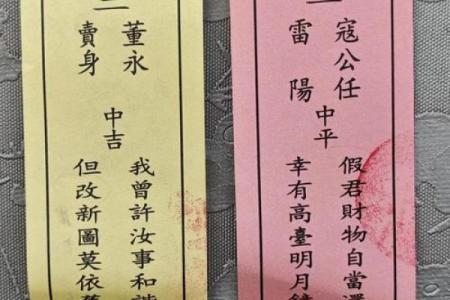 董永
賣身
中吉
我曾許汝事和諧
但改新圖莫依舊
寇公任
雷陽
中平
假君財物自當還
幸有高臺明月鏡